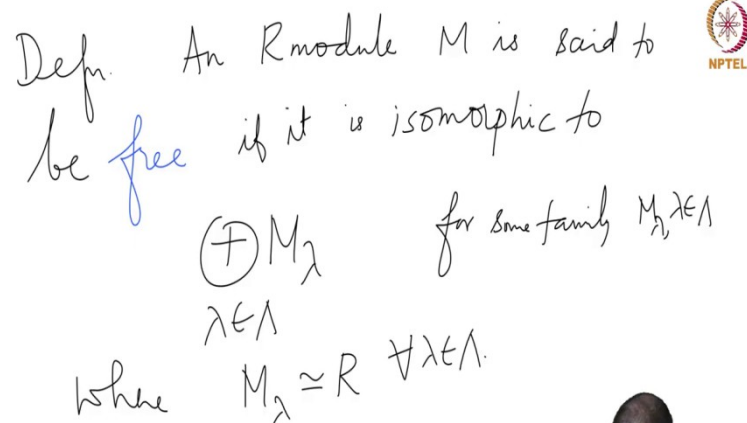 Defn. An R module M is said to
be free if it is isomorphic to
⊕ M_λ for some family M_λ, λ∈Λ
λ∈Λ
where M_λ ≃ R ∀λ∈Λ.
NPTEL